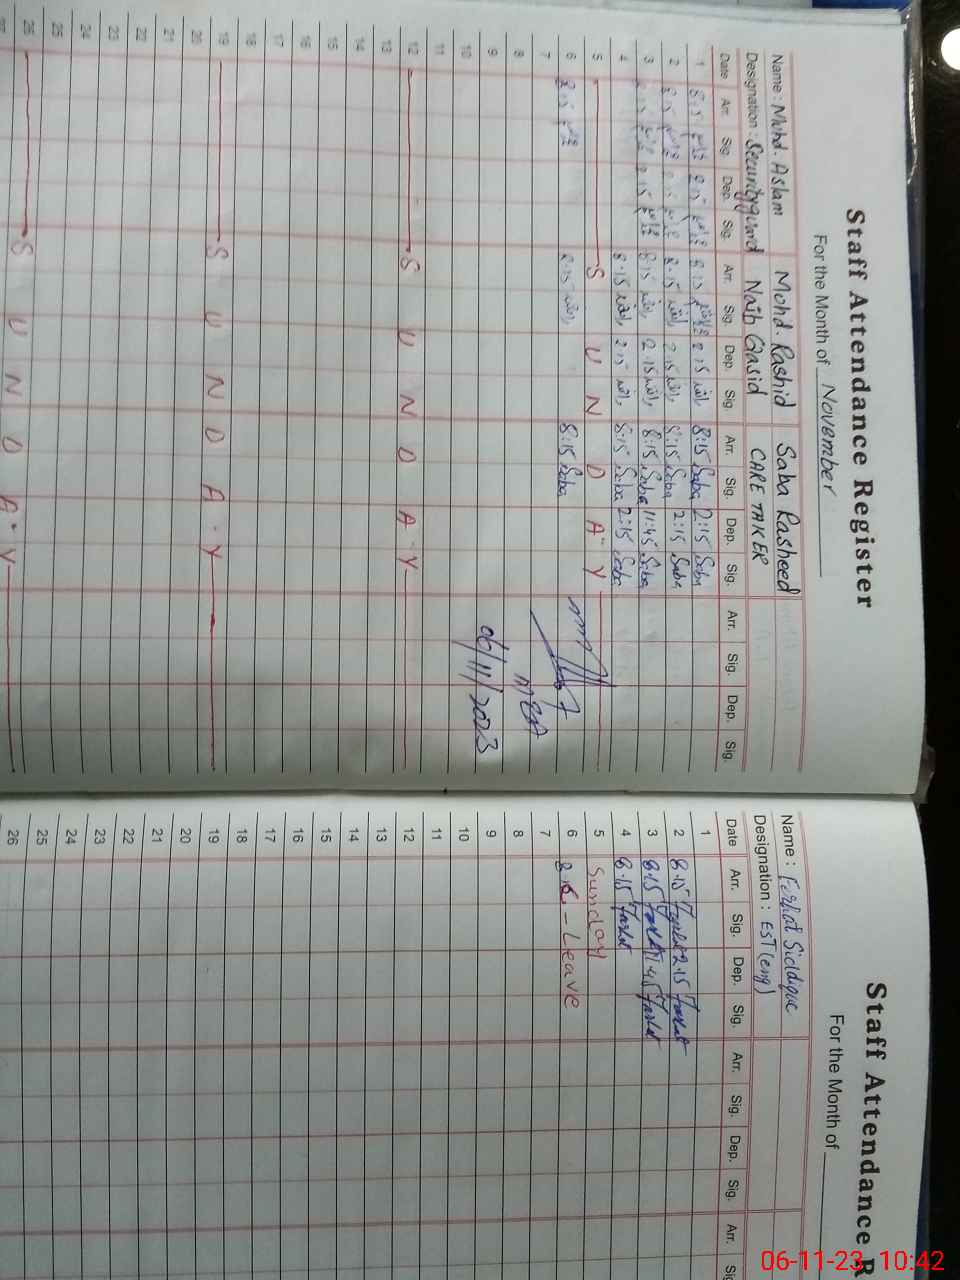 Staff Attendance Register
For the Month of November
Name : Mohd. Aslam Mohd. Rashid Saba Rasheed
Designation : Security guard Naib Qasid CARE TAKER
Date Arr. Sig. Dep. Sig. Arr. Sig. Dep. Sig. Arr. Sig. Dep. Sig. Arr. Sig. Dep. Sig.
1 8:15 2:15 8:15 2:15 8:15 Saba 2:15 Saba
2 8:15 2:15 8:15 2:15 8:15 Saba 2:15 Saba
3 8:15 2:15 8:15 2:15 8:15 Saba 11:45 Saba
4 8:15 2:15 8:15 Saba 2:15 Saba
5 S U N D A Y
6 8:15 8:15 8:15 Saba
7 MEA
8
9 06/11/2023
10
11
12 S U N D A Y
13
14
15
16
17
18
19 S U N D A Y
20
21
22
23
24
25
26 S U N D A Y
27
Staff Attendance R
For the Month of
Name : Farhat Siddique
Designation : EST (eng)
Date Arr. Sig. Dep. Sig. Arr. Sig. Dep. Sig. Arr. Sig
1
2 8.15 Farhat 2.15 Farhat
3 8.15 Farhat 11.45 Farhat
4 8.15 Farhat
5 Sunday
6 8.15 - Leave
7
8
9
10
11
12
13
14
15
16
17
18
19
20
21
22
23
24
25
26
06-11-23 10:42